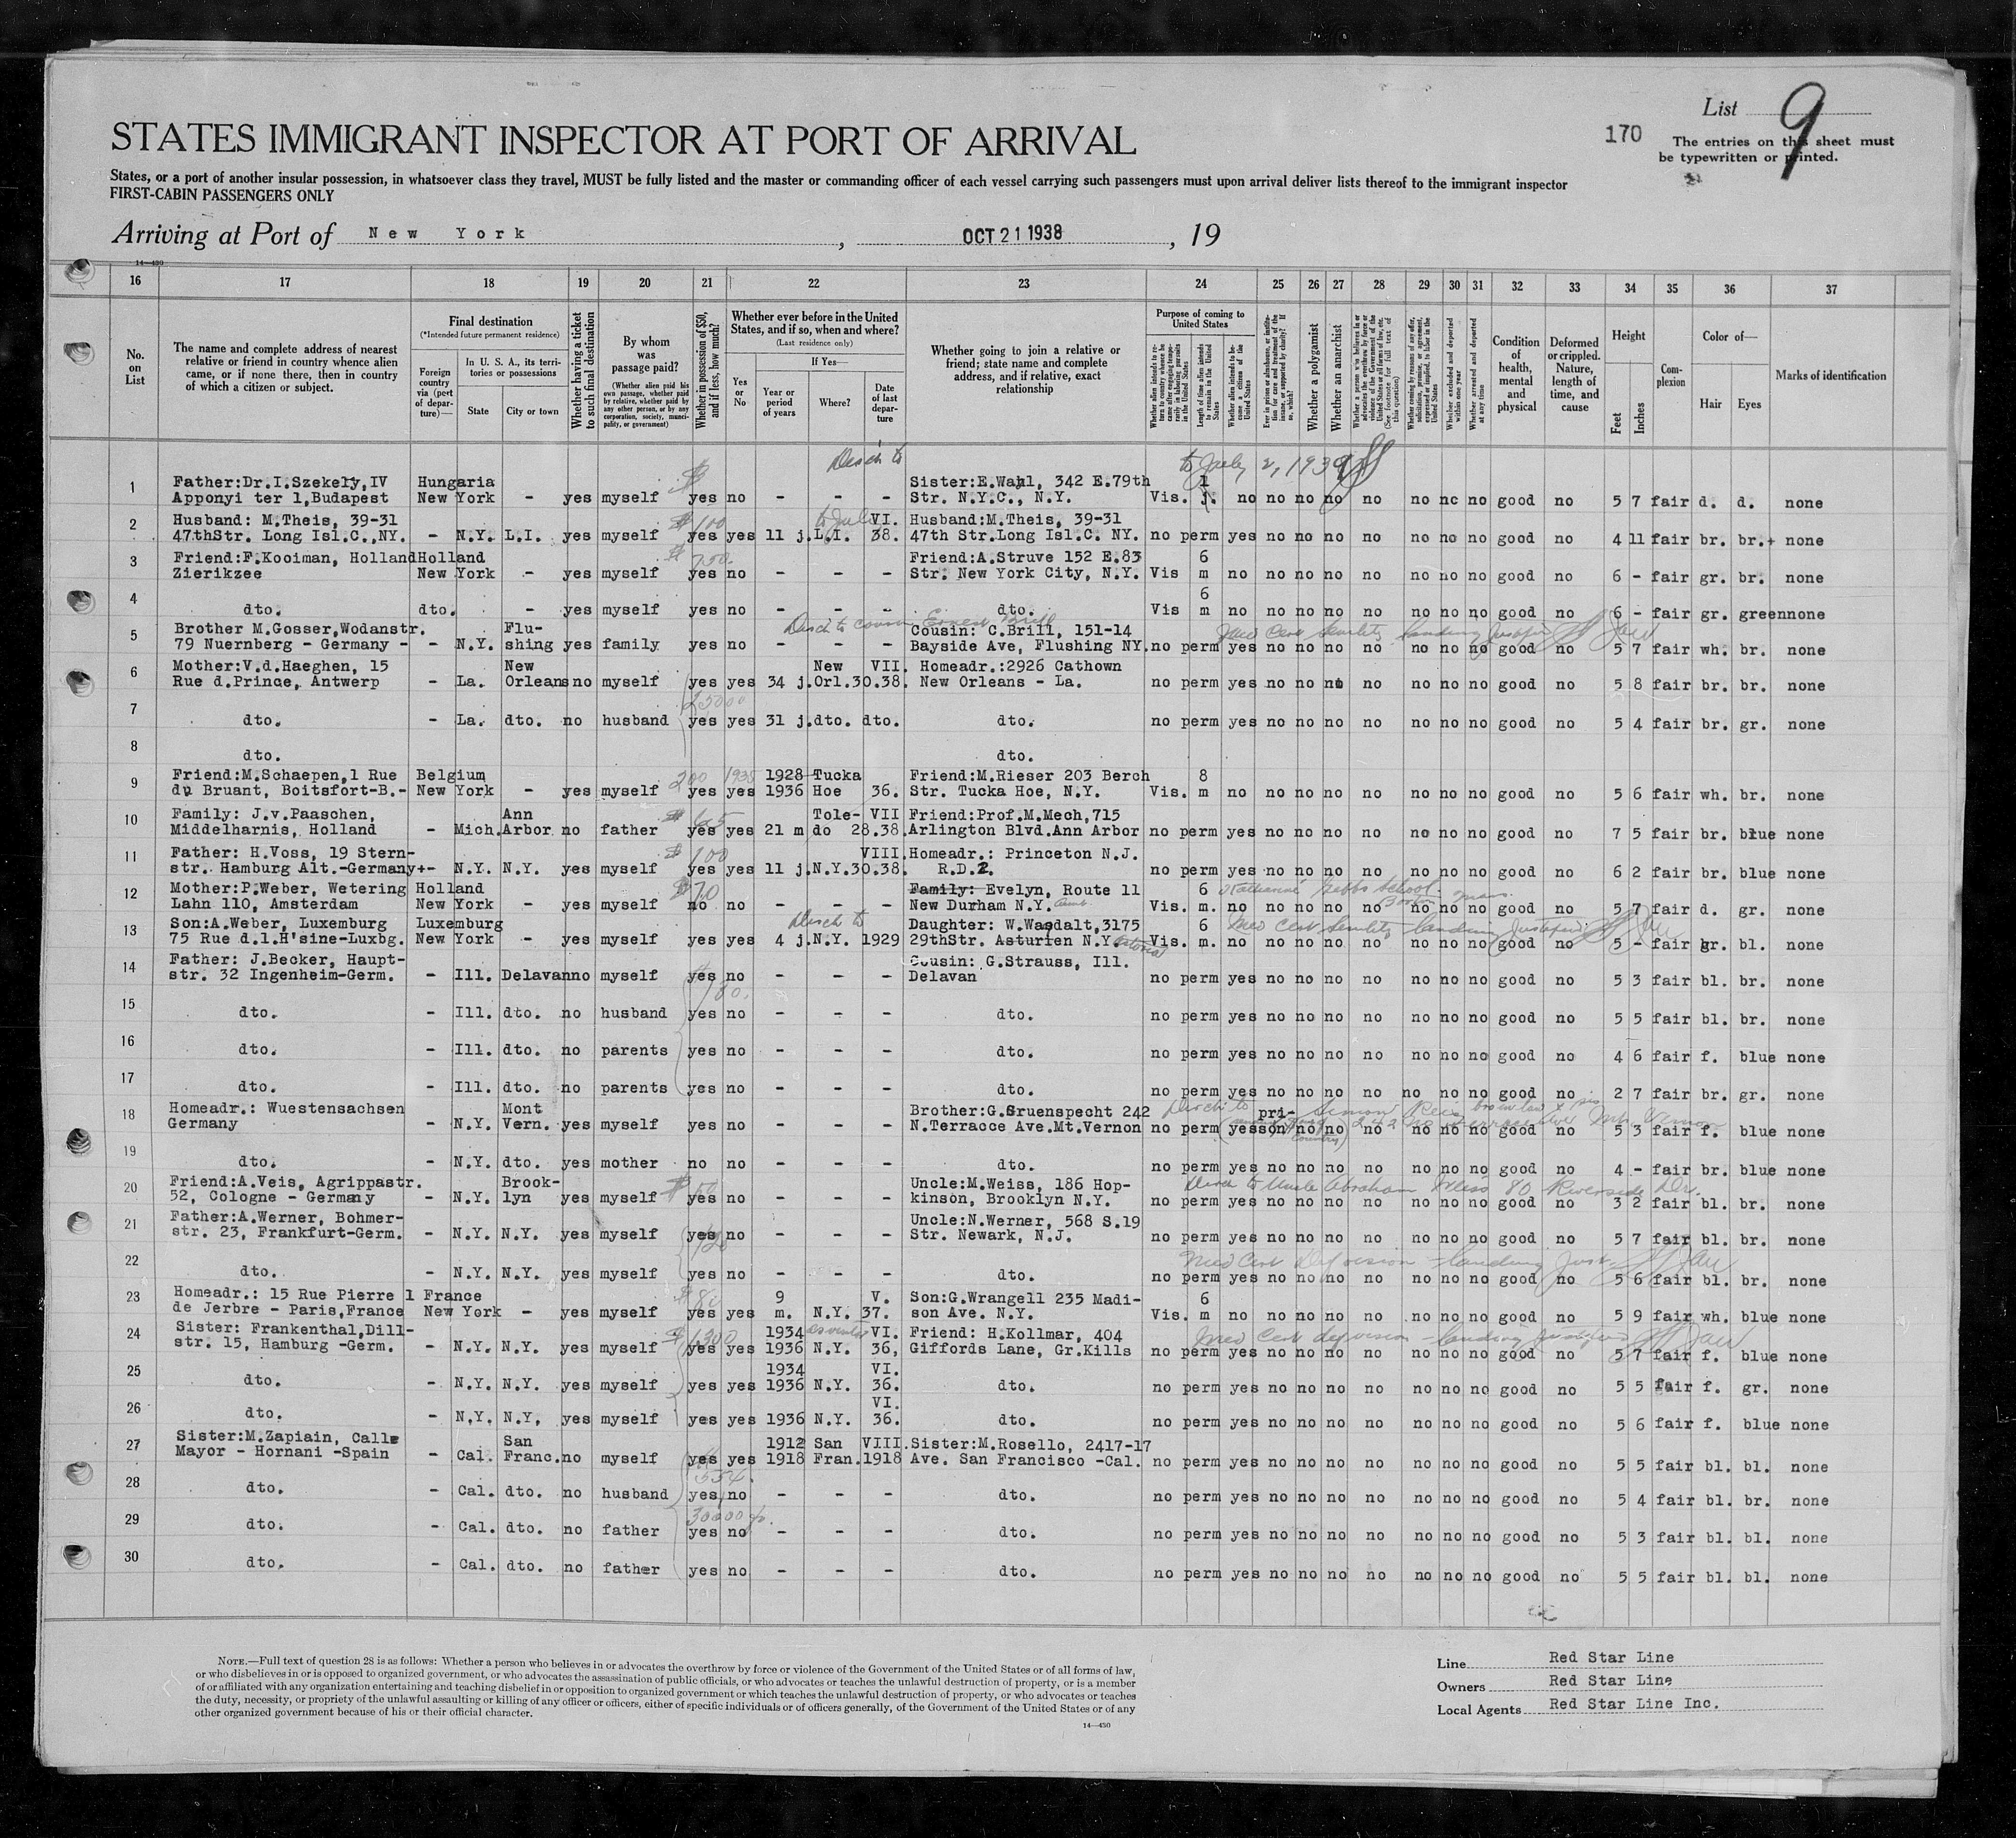 List 9
170
The entries on this sheet must
be typewritten or printed.
STATES IMMIGRANT INSPECTOR AT PORT OF ARRIVAL
States, or a port of another insular possession, in whatsoever class they travel, MUST be fully listed and the master or commanding officer of each vessel carrying such passengers must upon arrival deliver lists thereof to the immigrant inspector
FIRST-CABIN PASSENGERS ONLY
Arriving at Port of New York, OCT 21 1938, 19
14—430
16 17 18 19 20 21 22 23 24 25 26 27 28 29 30 31 32 33 34 35 36 37
No. on List
The name and complete address of nearest relative or friend in country whence alien came, or if none there, then in country of which a citizen or subject.
Final destination
(*Intended future permanent residence)
Foreign country via (port of departure)—
In U. S. A., its territories or possessions
State
City or town
Whether having a ticket to such final destination
By whom was passage paid?
(Whether alien paid his own passage, whether paid by relative, whether paid by any other person, or by any corporation, society, municipality, or government)
Whether in possession of $50, and if less, how much?
Whether ever before in the United States, and if so, when and where?
(Last residence only)
Yes or No
If Yes—
Year or period of years
Where?
Date of last departure
Whether going to join a relative or friend; state name and complete address, and if relative, exact relationship
Purpose of coming to United States
Length of time alien intends to remain in the United States
Whether alien intends to become a citizen of the United States
Whether a polygamist
Whether an anarchist
Whether excluded and deported within one year
Whether arrested and deported at any time
Condition of health, mental and physical
Deformed or crippled. Nature, length of time, and cause
Height
Feet
Inches
Complexion
Color of—
Hair
Eyes
Marks of identification
to July 2, 1939
1 Father:Dr.I.Szekely,IV Hungaria Sister:E.Wahl, 342 E.79th 1
Apponyi ter 1,Budapest New York - yes myself yes no - - - Str. N.Y.C., N.Y. Vis. j. no no no no no no no no good no 5 7 fair d. d. none
2 Husband: M.Theis, 39-31 $100 VI. Husband:M.Theis, 39-31
47thStr. Long Isl.C.,NY. - N.Y. L.I. yes myself yes yes 11 j. L.I. 38. 47th Str.Long Isl.C. NY. no perm yes no no no no no no no good no 4 11 fair br. br.+ none
3 Friend:F.Kooiman, Holland Holland Friend:A.Struve 152 E.83 6
Zierikzee New York - yes myself yes no - - - Str. New York City, N.Y. Vis m no no no no no no no no good no 6 - fair gr. br. none
4 6
dto. dto. - yes myself yes no - - - dto. Vis m no no no no no no no no good no 6 - fair gr. green none
5 Brother M.Gosser,Wodanstr. Flu- Cousin: C.Brill, 151-14
79 Nuernberg - Germany - - N.Y. shing yes family yes no - - - Bayside Ave, Flushing NY. no perm yes no no no no no no no good no 5 7 fair wh. br. none
6 Mother:V.d.Haeghen, 15 New New VII. Homeadr.:2926 Cathown
Rue d.Prince, Antwerp - La. Orleans no myself yes yes 34 j. Orl. 30.38. New Orleans - La. no perm yes no no no no no no no good no 5 8 fair br. br. none
7 dto. - La. dto. no husband yes yes 31 j. dto. dto. dto. no perm yes no no no no no no no good no 5 4 fair br. gr. none
8 dto. dto.
9 Friend:M.Schaepen,1 Rue Belgium 200 1928 Tucka Friend:M.Rieser 203 Berch 8
du Bruant, Boitsfort-B.- New York - yes myself yes yes 1936 Hoe 36. Str. Tucka Hoe, N.Y. Vis. m no no no no no no no no good no 5 6 fair wh. br. none
10 Family: J.v.Paaschen, Ann Tole- VII Friend:Prof.M.Mech,715
Middelharnis, Holland - Mich. Arbor no father yes yes 21 m do 28.38. Arlington Blvd.Ann Arbor no perm yes no no no no no no no good no 7 5 fair br. blue none
11 Father: H.Voss, 19 Stern- $100 VIII. Homeadr.: Princeton N.J.
str. Hamburg Alt.-Germany+- N.Y. N.Y. yes myself yes yes 11 j. N.Y. 30.38. R.D.2. no perm yes no no no no no no no good no 6 2 fair br. blue none
12 Mother:P.Weber, Wetering Holland Family: Evelyn, Route 11 6
Lahn 110, Amsterdam New York - yes myself no no - - - New Durham N.Y. Vis. m. no no no no no no no no good no 5 7 fair d. gr. none
13 Son:A.Weber, Luxemburg Luxemburg Daughter: W.Wagdalt,3175 6
75 Rue d.l.H'sine-Luxbg. New York - yes myself yes yes 4 j. N.Y. 1929 29thStr. Asturien N.Y. Vis. m. no no no no no no no no good no 5 - fair gr. bl. none
14 Father: J.Becker, Haupt- Cousin: G.Strauss, Ill.
str. 32 Ingenheim-Germ. - Ill. Delavan no myself yes no - - - Delavan no perm yes no no no no no no no good no 5 3 fair bl. br. none
15 dto. - Ill. dto. no husband yes no - - - dto. no perm yes no no no no no no no good no 5 5 fair bl. br. none
16 dto. - Ill. dto. no parents yes no - - - dto. no perm yes no no no no no no no good no 4 6 fair f. blue none
17 dto. - Ill. dto. no parents yes no - - - dto. no perm yes no no no no no no no good no 2 7 fair br. gr. none
18 Homeadr.: Wuestensachsen Mont Brother:G.Gruenspecht 242 pri-
Germany - N.Y. Vern. yes myself yes no - - - N.Terracce Ave.Mt.Vernon no perm yes son no no no no no no good no 5 3 fair f. blue none
19 dto. - N.Y. dto. yes mother no no - - - dto. no perm yes no no no no no no no good no 4 - fair br. blue none
20 Friend:A.Veis, Agrippastr. Brook- Uncle:M.Weiss, 186 Hop-
52, Cologne - Germany - N.Y. lyn yes myself yes no - - - kinson, Brooklyn N.Y. no perm yes no no no no no no no good no 3 2 fair bl. br. none
21 Father:A.Werner, Bohmer- Uncle:N.Werner, 568 S.19
str. 23, Frankfurt-Germ. - N.Y. N.Y. yes myself yes no - - - Str. Newark, N.J. no perm yes no no no no no no no good no 5 7 fair bl. br. none
22 dto. - N.Y. N.Y. yes myself yes no - - - dto. no perm yes no no no no no no no good no 5 6 fair bl. br. none
23 Homeadr.: 15 Rue Pierre l France 9 V. Son:G.Wrangell 235 Madi- 6
de Jerbre - Paris,France New York - yes myself yes yes m. N.Y. 37. son Ave. N.Y. Vis. m no no no no no no no no good no 5 9 fair wh. blue none
24 Sister: Frankenthal,Dill- $1300 1934 VI. Friend: H.Kollmar, 404
str. 15, Hamburg -Germ. - N.Y. N.Y. yes myself yes yes 1936 N.Y. 36, Giffords Lane, Gr.Kills no perm yes no no no no no no no good no 5 7 fair f. blue none
25 1934 VI.
dto. - N.Y. N.Y. yes myself yes yes 1936 N.Y. 36. dto. no perm yes no no no no no no no good no 5 5 fair f. gr. none
26 VI.
dto. - N.Y. N.Y, yes myself yes yes 1936 N.Y. 36. dto. no perm yes no no no no no no no good no 5 6 fair f. blue none
27 Sister:M.Zapiain, Calle San 1912 San VIII. Sister:M.Rosello, 2417-17
Mayor - Hornani -Spain - Cal. Franc. no myself yes yes 1918 Fran. 1918 Ave. San Francisco -Cal. no perm yes no no no no no no no good no 5 5 fair bl. bl. none
28 dto. - Cal. dto. no husband yes no - - - dto. no perm yes no no no no no no no good no 5 4 fair bl. br. none
29 dto. - Cal. dto. no father yes no - - - dto. no perm yes no no no no no no no good no 5 3 fair bl. bl. none
30 dto. - Cal. dto. no father yes no - - - dto. no perm yes no no no no no no no good no 5 5 fair bl. bl. none
NOTE.—Full text of question 28 is as follows: Whether a person who believes in or advocates the overthrow by force or violence of the Government of the United States or of all forms of law,
or who disbelieves in or is opposed to organized government, or who advocates the assassination of public officials, or who advocates or teaches the unlawful destruction of property, or is a member
of or affiliated with any organization entertaining and teaching disbelief in or opposition to organized government or which teaches the unlawful destruction of property, or who advocates or teaches
the duty, necessity, or propriety of the unlawful assaulting or killing of any officer or officers, either of specific individuals or of officers generally, of the Government of the United States or of any
other organized government because of his or their official character.
14—430
Line Red Star Line
Owners Red Star Line
Local Agents Red Star Line Inc.